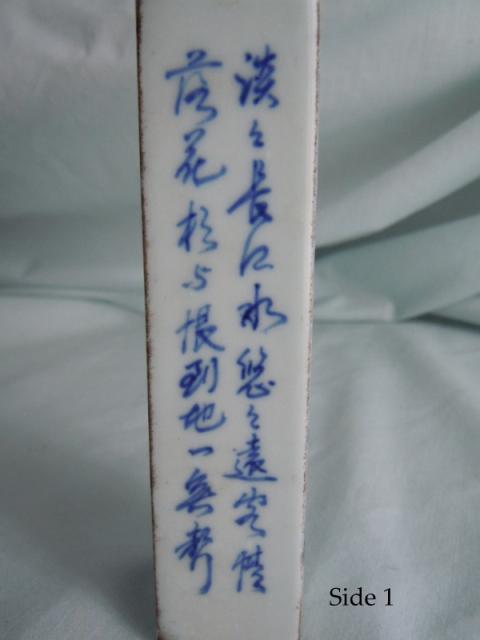 淡々長江水悠々遠客情
落花相与恨到地一無聲
Side 1